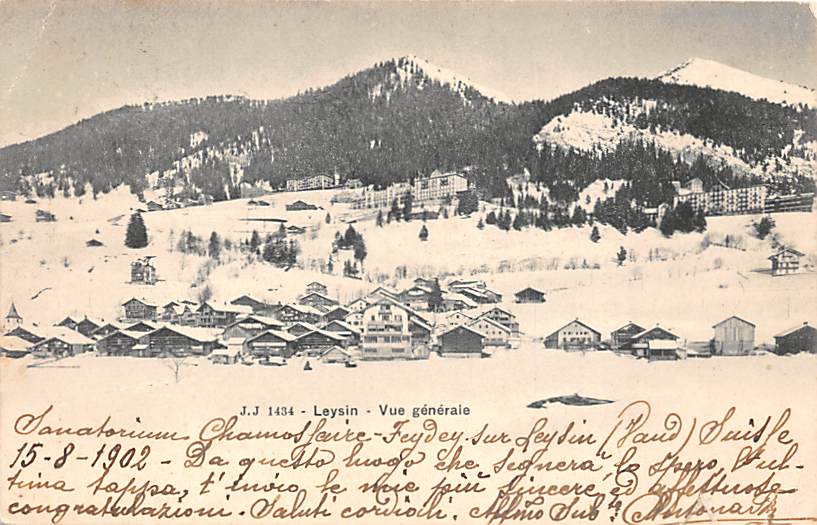 J.J 1434 - Leysin - Vue générale
Sanatorium Chamossaire-Feydey sur Leysin (Vaud) Suisse
15-8-1902 - Da questo luogo che segnerà lo spero l'ul-
tima tappa, t'invio le mie più sincere ed affettuose
congratulazioni. Saluti cordiali.